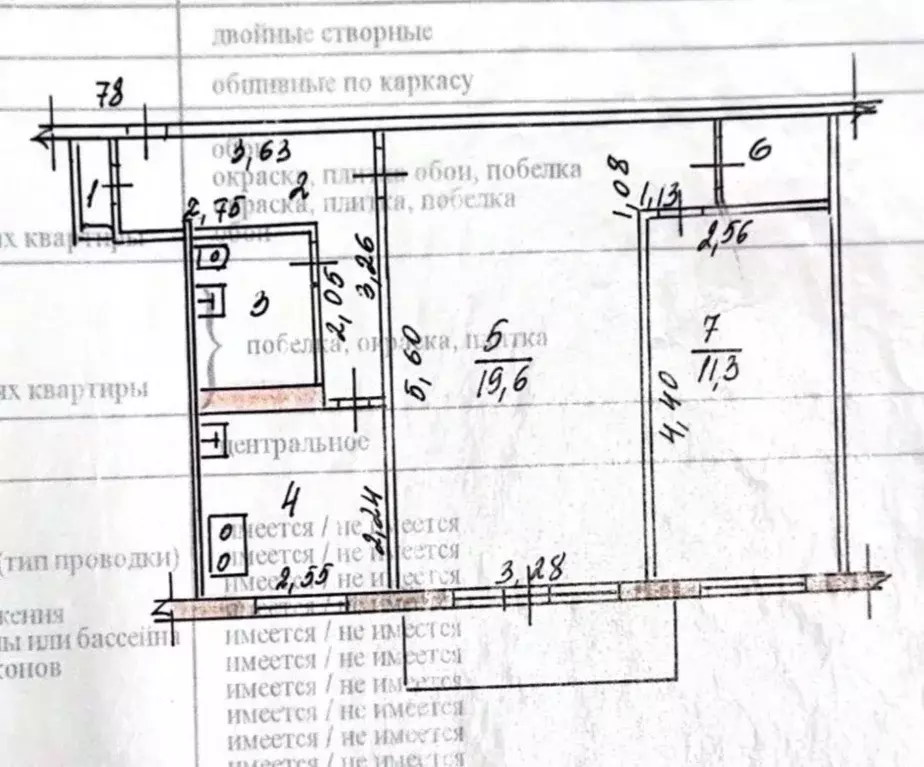 двойные створные
обшивные по каркасу
78
обои
3,63
окраска, плитка обои, побелка
1
2
1,08
1,13
6
2,75
окраска, плитка, побелка
2,56
их квартиры
обои
3
2,05
3,26
побелка, окраска, плитка
5,60
5
19,6
7
11,3
4,40
ях квартиры
центральное
4
2,24
имеется / не имеется
(тип проводки)
имеется / не имеется
2,55
3,28
имеется / не имеется
жения
имеется / не имеется
ы или бассейна
имеется / не имеется
конов
имеется / не имеется
имеется / не имеется
имеется / не имеется
имеется / не имеется
имеется / не имеется